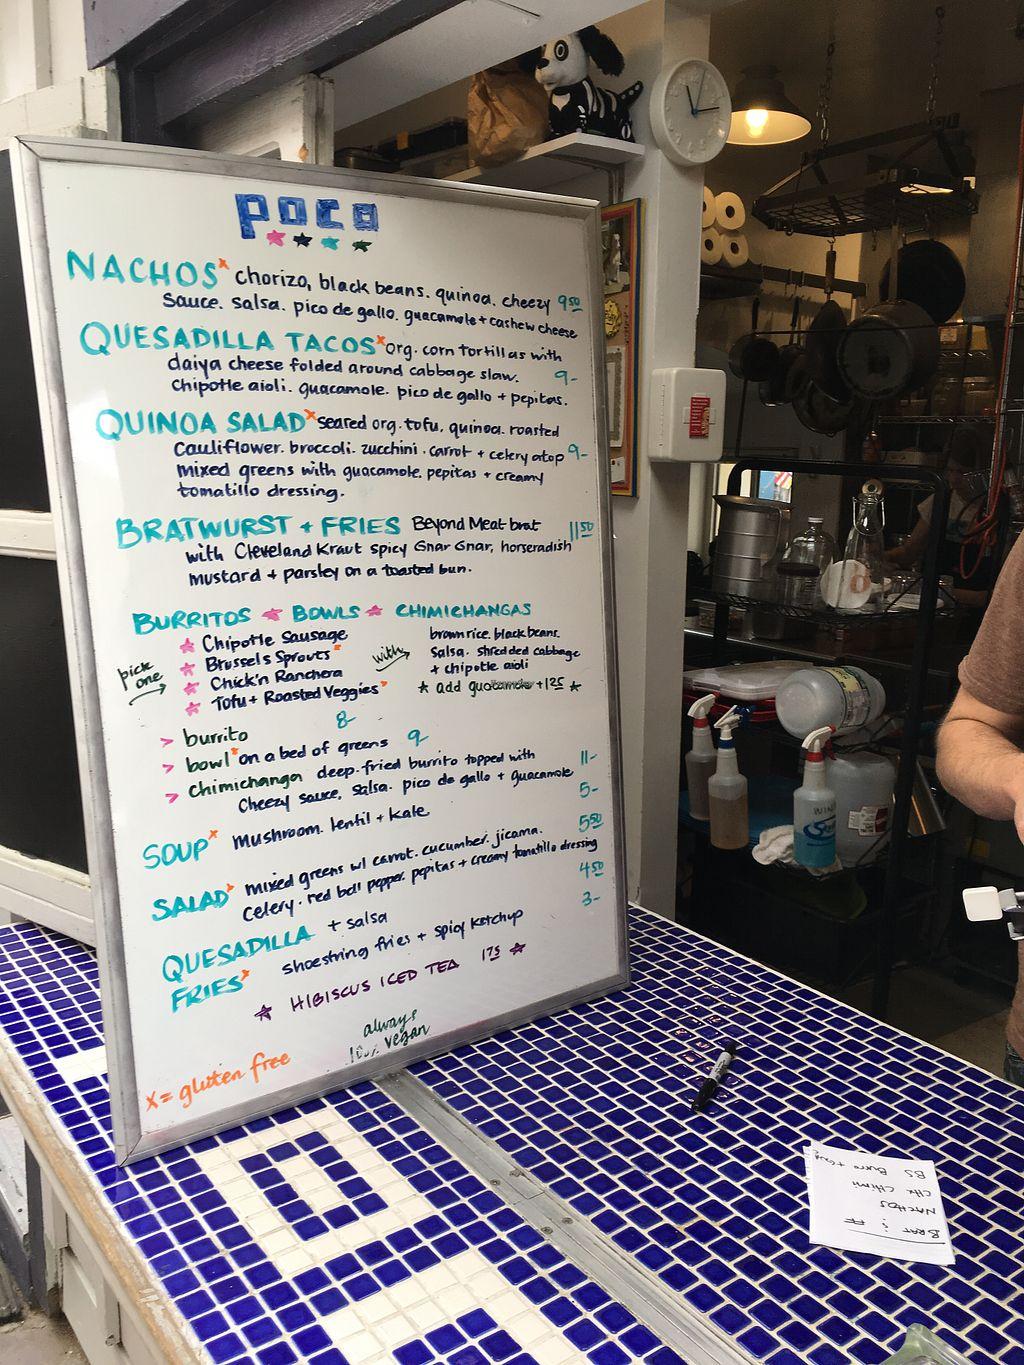 poco
NACHOS x chorizo, black beans. quinoa. cheezy 9.50
sauce. salsa. pico de gallo. guacamole + cashew cheese
QUESADILLA TACOS x org. corn tortillas with
daiya cheese folded around cabbage slaw. 9-
chipotle aioli. guacamole. pico de gallo + pepitas.
QUINOA SALAD x seared org. tofu. quinoa. roasted
cauliflower. broccoli. zucchini. carrot + celery atop 9-
mixed greens with guacamole. pepitas + creamy
tomatillo dressing.
BRATWURST + FRIES Beyond Meat brat 11.50
with Cleveland Kraut spicy Gnar Gnar, horseradish
mustard + parsley on a toasted bun.
BURRITOS ★ BOWLS ★ CHIMICHANGAS
pick one
★ Chipotle Sausage
★ Brussels Sprouts x
★ Chick'n Ranchera
★ Tofu + Roasted Veggies x
with
brown rice. black beans.
salsa. shredded cabbage
+ chipotle aioli
★ add guacamole + 1.25 ★
> burrito 8-
> bowl x on a bed of greens 9-
> chimichanga deep-fried burrito topped with 11-
cheezy sauce, salsa. pico de gallo + guacamole
SOUP x mushroom. lentil + kale 5-
SALAD x mixed greens w/ carrot. cucumber. jicama. 5.50
celery. red bell pepper. pepitas + creamy tomatillo dressing
QUESADILLA + salsa 4.50
FRIES x shoestring fries + spicy ketchup 3-
★ HIBISCUS ICED TEA 1.75 ★
always
100% vegan
x = gluten free
BRAT & FF
NACHOS
CHX CHIMI
BS Burro + Guac